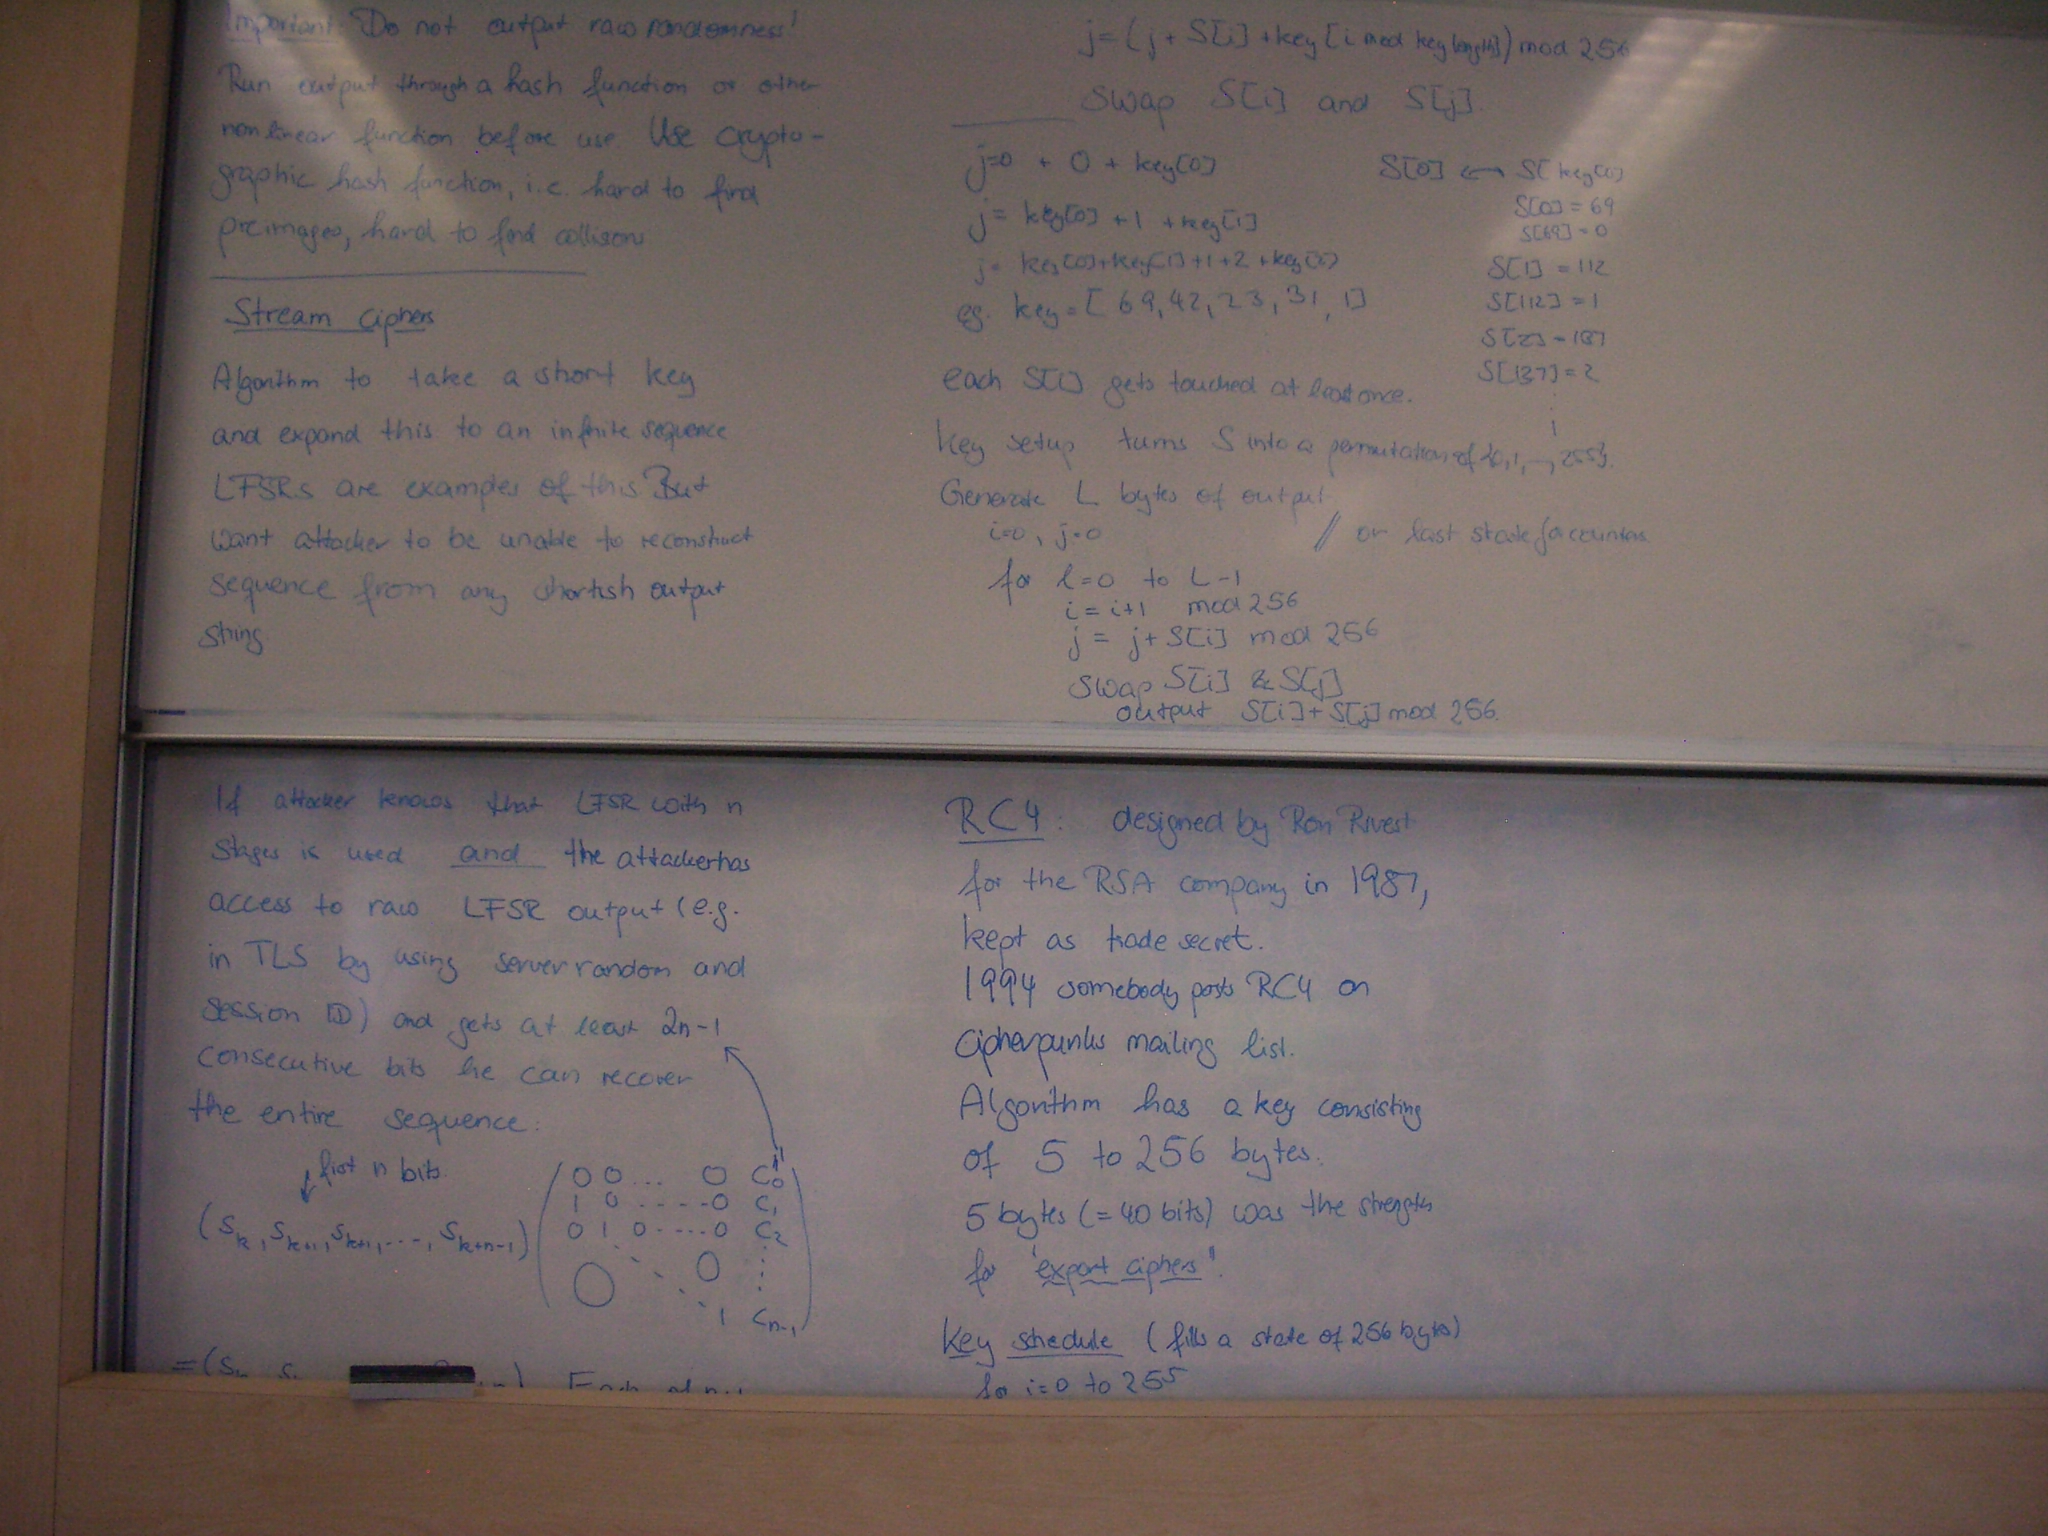 Important: Do not output raw randomness!
Run output through a hash function or other
nonlinear function before use. Use crypto-
graphic hash function, i.e. hard to find
preimages, hard to find collisons
Stream ciphers
Algorithm to take a short key
and expand this to an infinite sequence
LFSRs are examples of this But
want attacker to be unable to reconstruct
sequence from any shortish output
string
j=(j+S[i]+key[i mod keylength]) mod 256
swap S[i] and S[j].
j=0 + 0 + key[0]
j= key[0] +1 +key[1]
j= key[0]+key[1]+1+2+key[2]
eg. key=[69,42,23,31,1]
S[0] ↔ S[key[0]
S[0]=69
S[69]=0
S[1]=112
S[112]=1
S[2]=137
S[137]=2
each S[i] gets touched at least once.
key setup turns S into a permutation of {0,1,...,255}.
Generate L bytes of output
i=0, j=0 // or last state for counters
for l=0 to L-1
i=i+1 mod 256
j = j+S[i] mod 256
swap S[i] & S[j]
output S[i]+S[j] mod 256.
If attacker knows that LFSR with n
stages is used and the attacker has
access to raw LFSR output (e.g.
in TLS by using server random and
session ID) and gets at least 2n-1
consecutive bits he can recover
the entire sequence:
first n bits.
(s_k, s_k+1, s_k+1, ..., s_k+n-1)
0 0 ... 0 c_0
1 0 ..... 0 c_1
0 1 0 ..... 0 c_2
0 0
1 c_n-1
=(s
RC4: designed by Ron Rivest
for the RSA company in 1987,
kept as trade secret.
1994 somebody posts RC4 on
cipherpunks mailing list.
Algorithm has a key consisting
of 5 to 256 bytes.
5 bytes (=40 bits) was the strength
for "export ciphers".
Key schedule (fills a state of 256 bytes)
for i=0 to 255